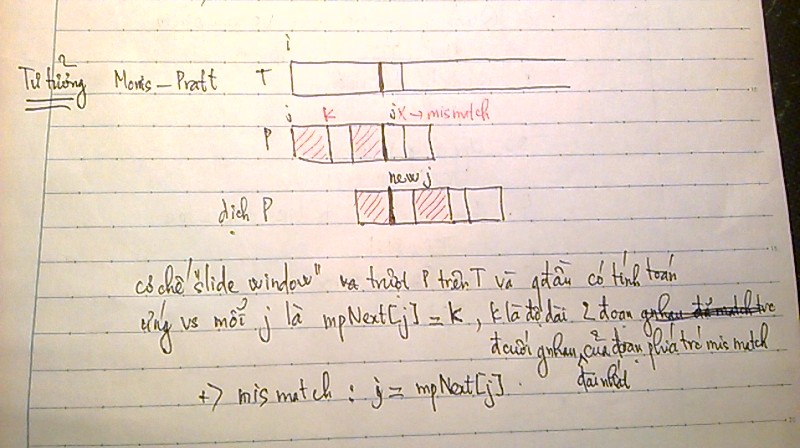 i
Tư tưởng Morris – Pratt T
j K j X → mismatch
P
new j
dịch P
cơ chế "slide window" ta trượt P trên T và gđầu có tính toán
ứng vs mỗi j là mpNext[j] = K, K là độ dài 2 đoạn
đcuối gnhau của đoạn phía trc mis match
dài nhất
+) mis match : j = mpNext[j].